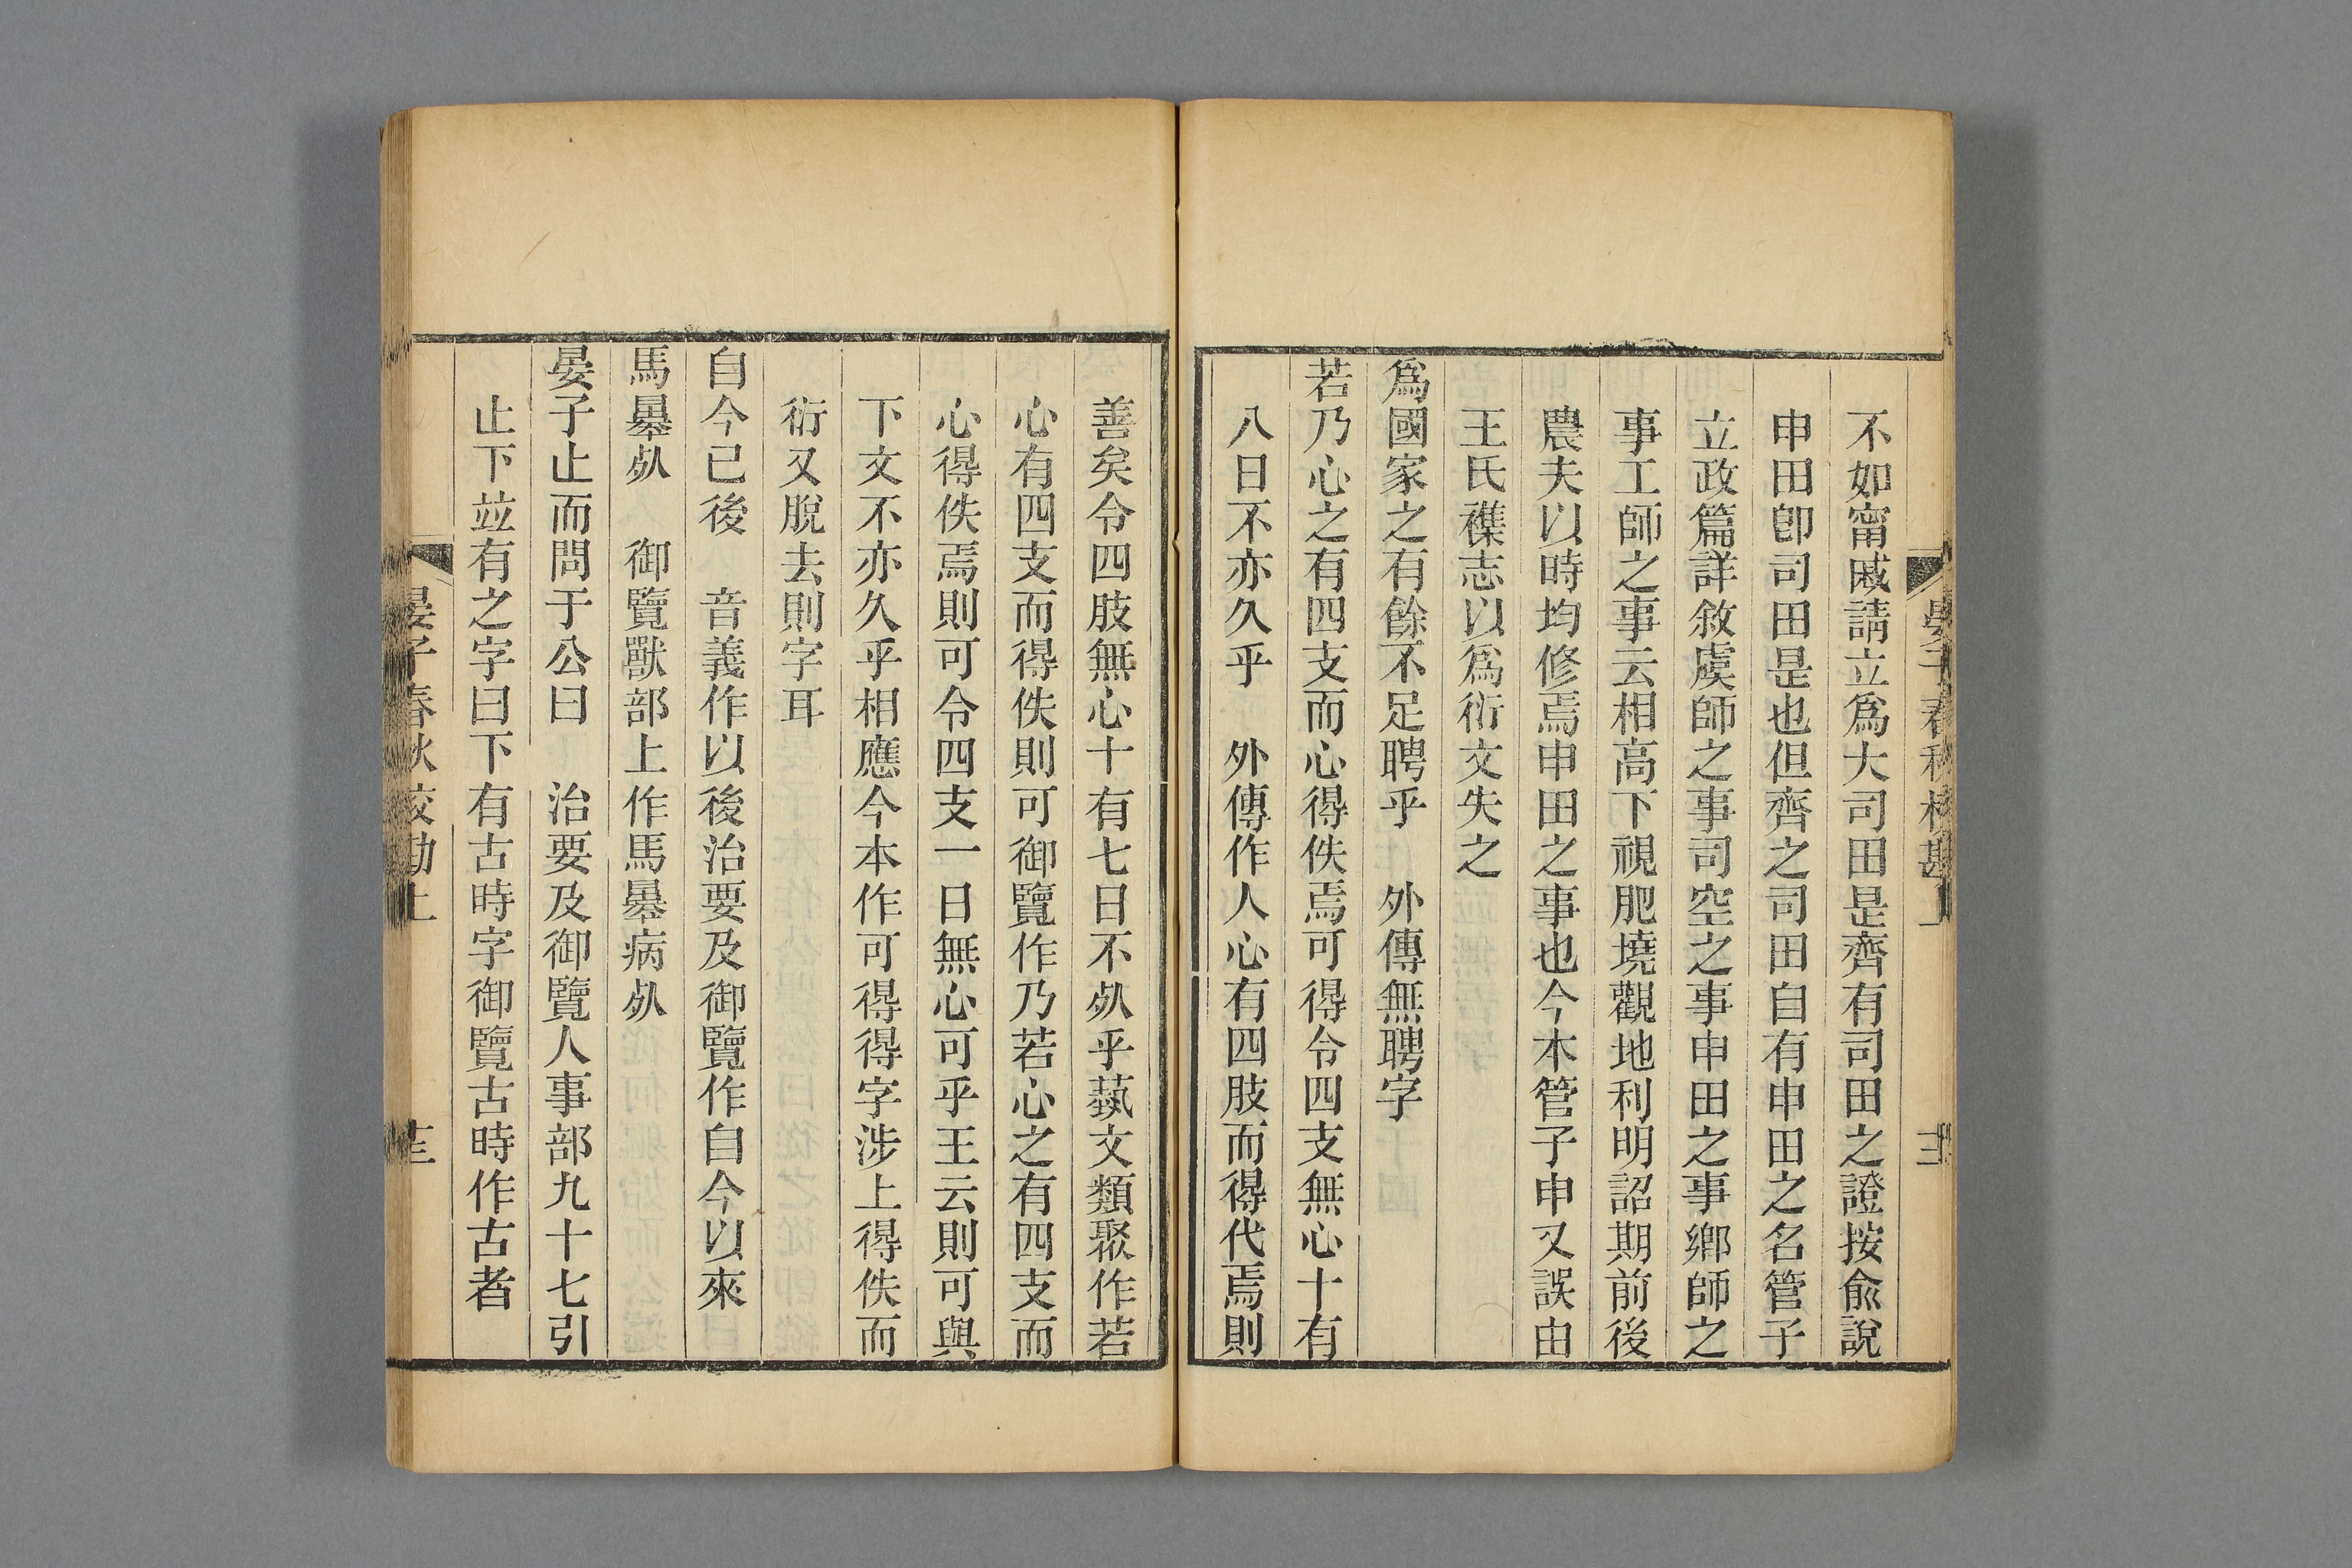 不如甯戚請立爲大司田是齊有司田之證按俞說
申田卽司田是也但齊之司田自有申田之名管子
立政篇詳敘虞師之事司空之事申田之事鄉師之
事工師之事云相高下視肥墝觀地利明詔期前後
農夫以時均修焉申田之事也今本管子申又誤由
王氏襍志以爲衍文失之
爲國家之有餘不足聘乎　外傳無聘字
若乃心之有四支而心得佚焉可得令四支無心十有
八日不亦久乎　外傳作人心有四肢而得代焉則
善矣令四肢無心十有七日不𣦸乎藝文類聚作若
心有四支而得佚則可御覽作乃若心之有四支而
心得佚焉則可令四支一日無心可乎王云則可與
下文不亦久乎相應今本作可得得字涉上得佚而
衍又脫去則字耳
自今已後　音義作以後治要及御覽作自今以來
馬㬥𣦸　御覽獸部上作馬㬥病𣦸
晏子止而問于公曰　治要及御覽人事部九十七引
止下竝有之字曰下有古時字御覽古時作古者
晏子春秋校勘上